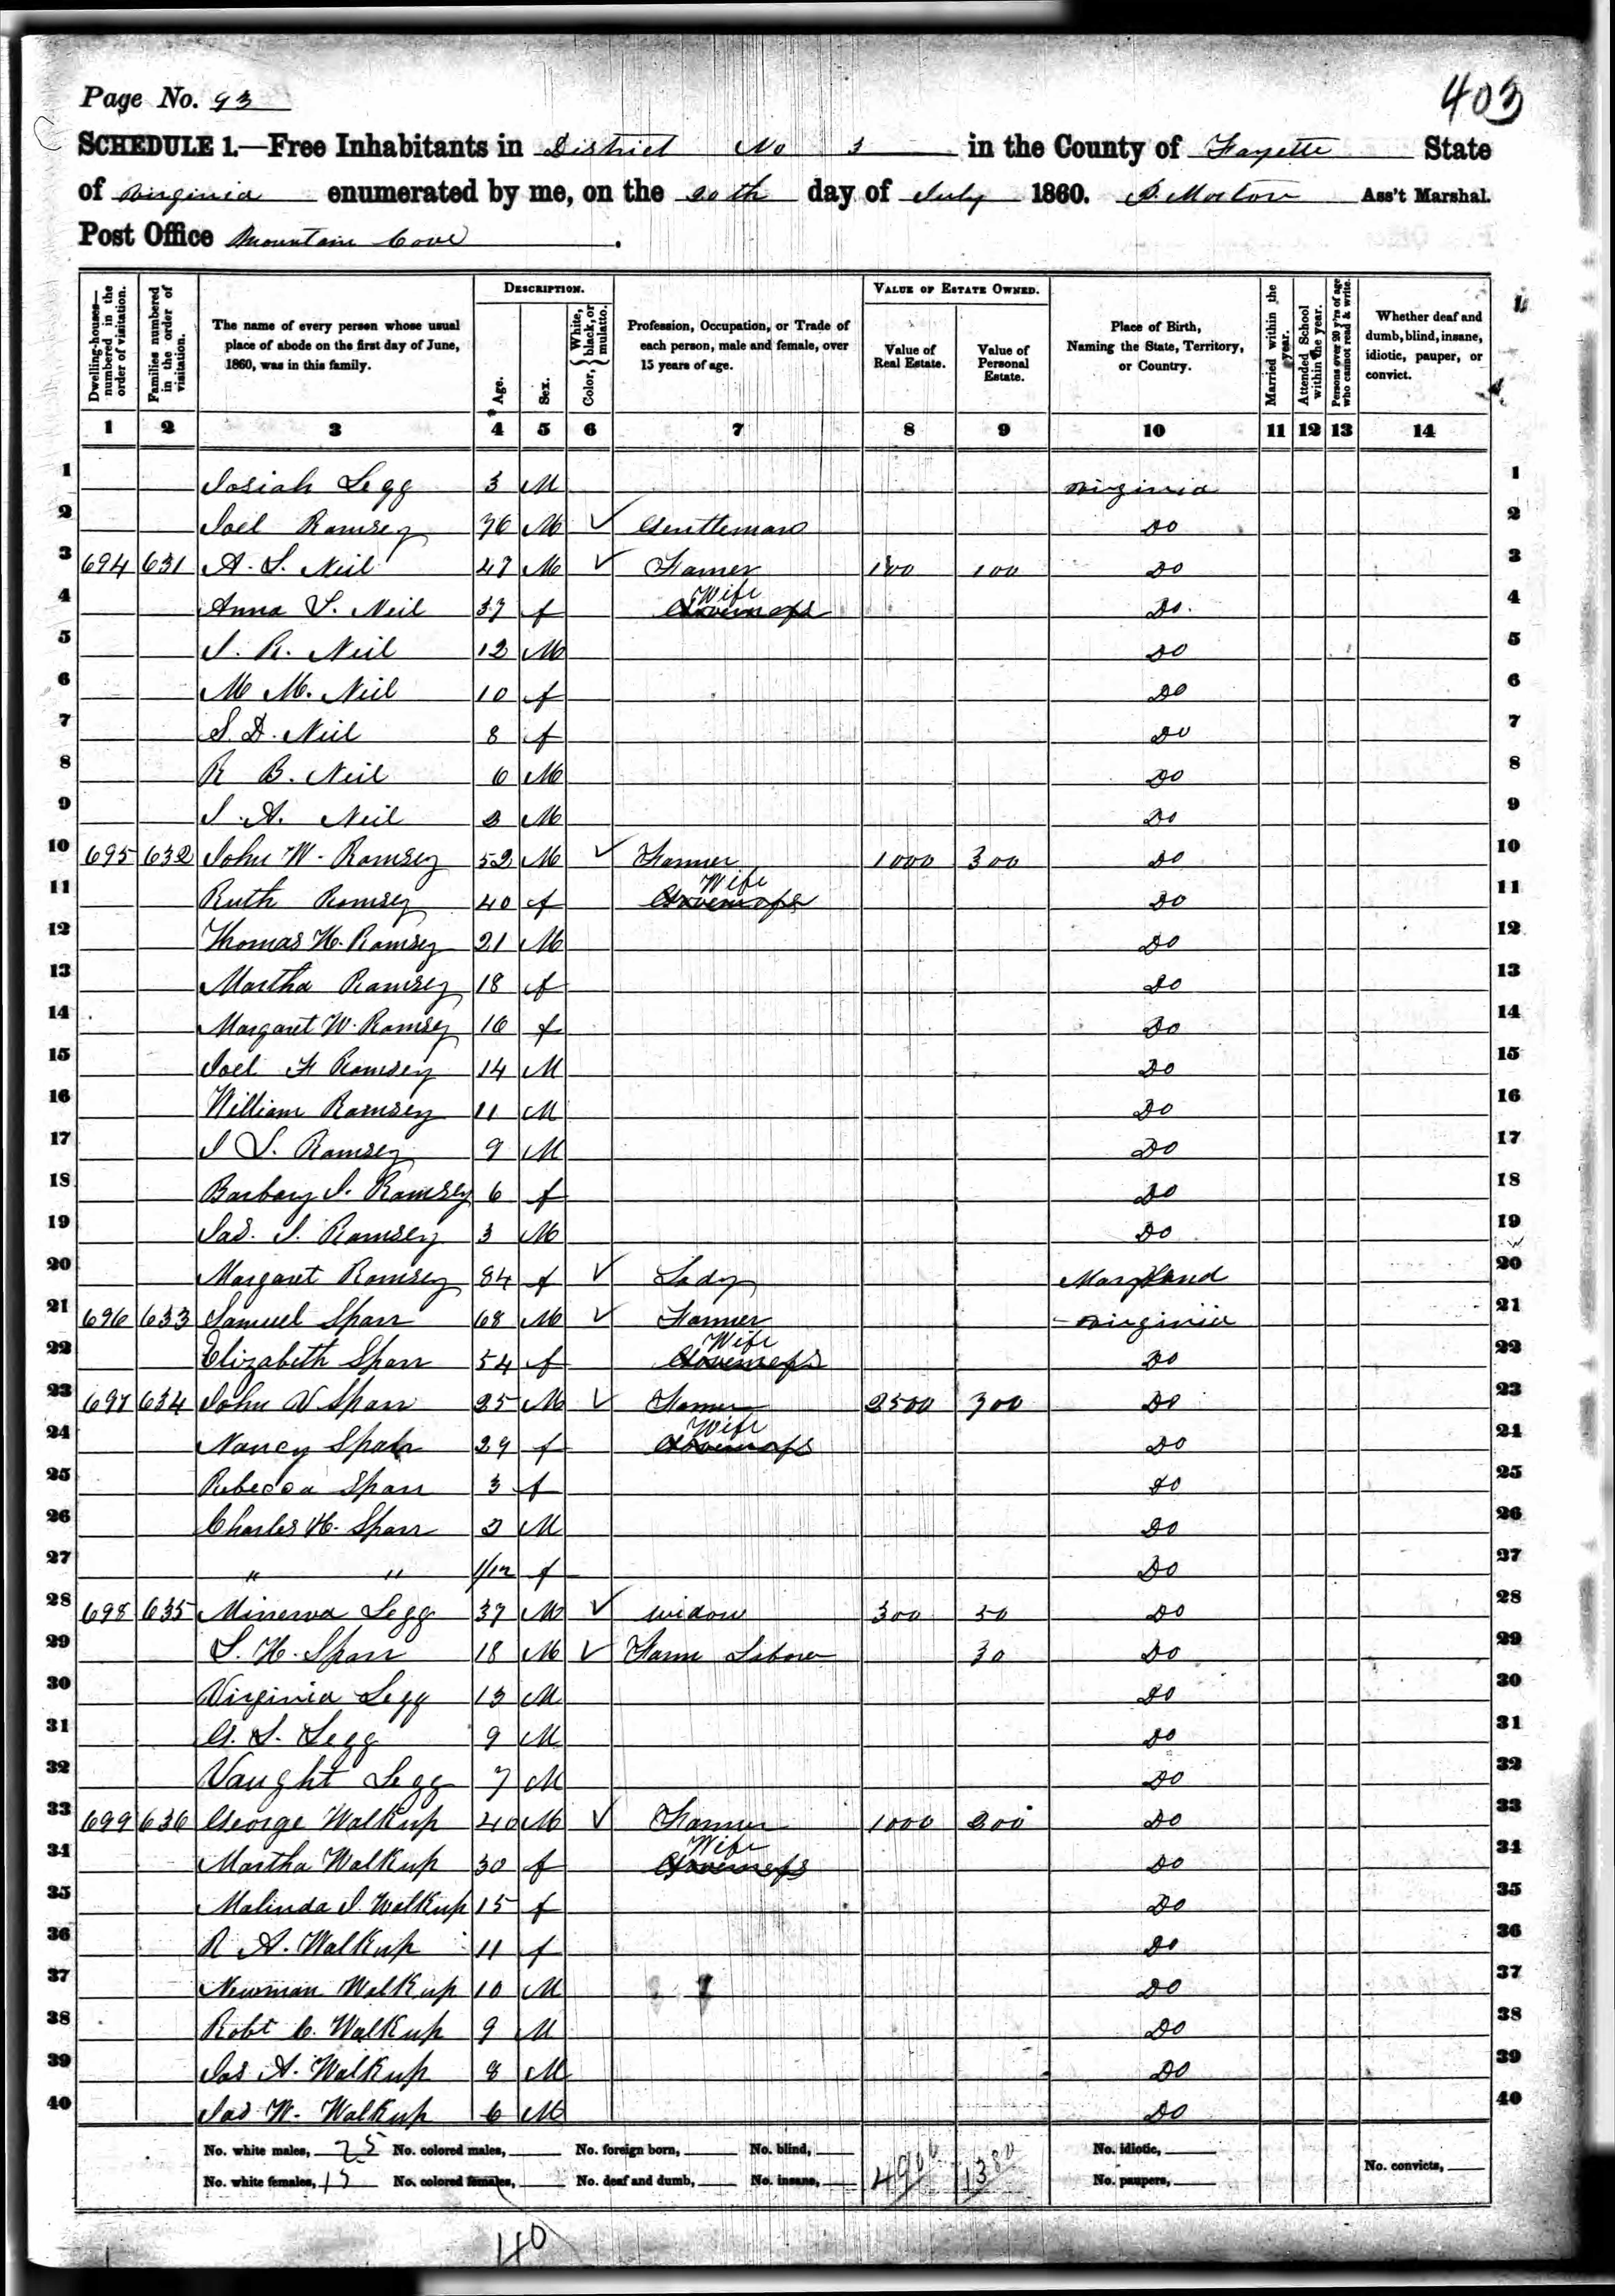 403
Page No. 93
SCHEDULE 1.—Free Inhabitants in District No 3 in the County of Fayette State
of Virginia enumerated by me, on the 20th day of July 1860. Morton Ass't Marshal.
Post Office Mountain Cove.
Dwelling-houses—numbered in the order of visitation.
Families numbered in the order of visitation.
The name of every person whose usual place of abode on the first day of June, 1860, was in this family.
DESCRIPTION.
Age.
Sex.
Color, { White, black, or mulatto.
Profession, Occupation, or Trade of each person, male and female, over 15 years of age.
VALUE OF ESTATE OWNED.
Value of Real Estate.
Value of Personal Estate.
Place of Birth, Naming the State, Territory, or Country.
Married within the year.
Attended School within the year.
Persons over 20 y'rs of age who cannot read & write.
Whether deaf and dumb, blind, insane, idiotic, pauper, or convict.
1 2 3 4 5 6 7 8 9 10 11 12 13 14
1 Josiah Legg 3 M Virginia 1
2 Joel Ramsey 76 M ✓ Gentleman Do 2
3 694 631 A. S. Neil 47 M ✓ Farmer 100 100 Do 3
4 Anna S. Neil 37 f Wife Do. 4
5 J. R. Neil 12 M Do 5
6 M M. Neil 10 f Do 6
7 S. D. Neil 8 f Do 7
8 R B. Neil 6 M Do 8
9 J. A. Neil 2 M Do 9
10 695 632 John W. Ramsey 52 M ✓ Farmer 1000 300 Do 10
11 Ruth Ramsey 40 f Wife Do 11
12 Thomas H. Ramsey 21 M Do 12
13 Martha Ramsey 18 f Do 13
14 Margaret W. Ramsey 16 f Do 14
15 Joel F Ramsey 14 M Do 15
16 William Ramsey 11 M Do 16
17 J S. Ramsey 9 M Do 17
18 Barbary J. Ramsey 6 f Do 18
19 Jas. J. Ramsey 3 M Do 19
20 Margaret Ramsey 84 f ✓ Lady Maryland 20
21 696 633 Samuel Sparr 68 M ✓ Farmer Virginia 21
22 Elizabeth Sparr 54 f Wife Do 22
23 697 634 John V Sparr 25 M ✓ Farmer 2500 700 Do 23
24 Nancy Sparr 29 f Wife Do 24
25 Rebecca Sparr 3 f Do 25
26 Charles H. Sparr 2 M Do 26
27 " " 1/12 f Do 27
28 698 635 Minerva Legg 37 M ✓ Widow 300 50 Do 28
29 S. H. Sparr 18 M ✓ Farm Labore 30 Do 29
30 Virginia Legg 13 M Do 30
31 G. S. Legg 9 M Do 31
32 Vaught Legg 7 M Do 32
33 699 636 George Walkup 40 M ✓ Farmer 1000 200 Do 33
34 Martha Walkup 30 f Wife Do 34
35 Malinda J. Walkup 15 f Do 35
36 R A. Walkup 11 f Do 36
37 Newman Walkup 10 M Do 37
38 Robt C. Walkup 9 M Do 38
39 Jas A. Walkup 8 M Do 39
40 Jas W. Walkup 6 M Do 40
No. white males, 25 No. colored males, No. foreign born, No. blind, 4900 1380 No. idiotic,
No. white females, 15 No. colored females, No. deaf and dumb, No. insane, No. paupers, No. convicts,
40